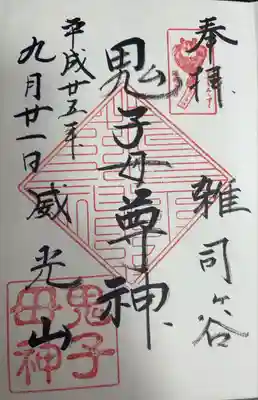 奉拝
雑司ヶ谷
鬼子母尊神
威光山
平成廿五年
九月廿一日
鬼子
母神